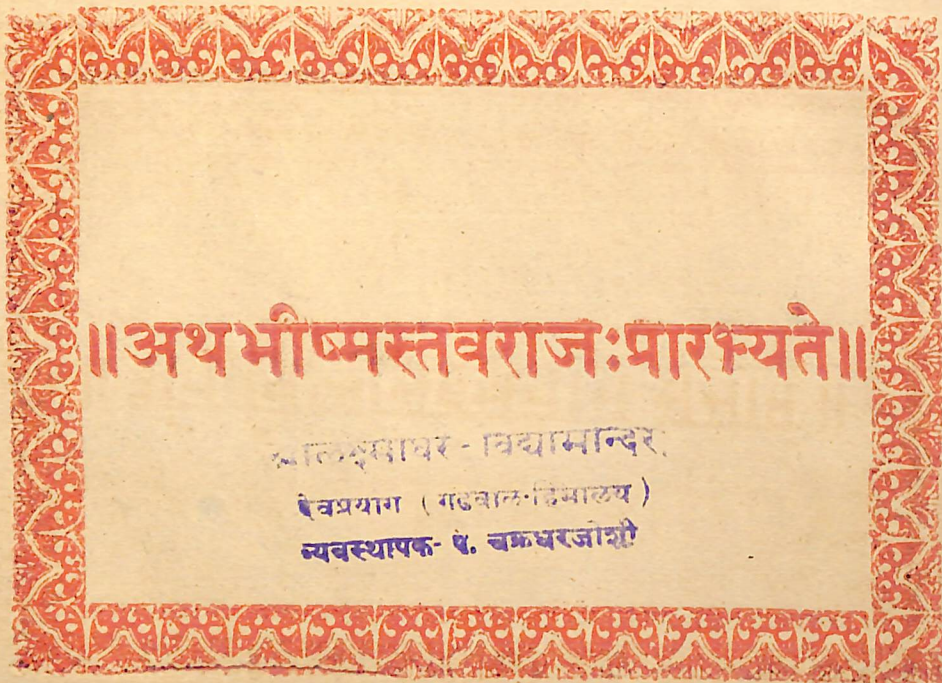 ॥अथभीष्मस्तवराजःप्रारभ्यते॥
श्रीलक्ष्मीधर - विद्यामन्दिर
देवप्रयाग ( गढवाल-हिमालय )
व्यवस्थापक- पं. चक्रधरजोशी